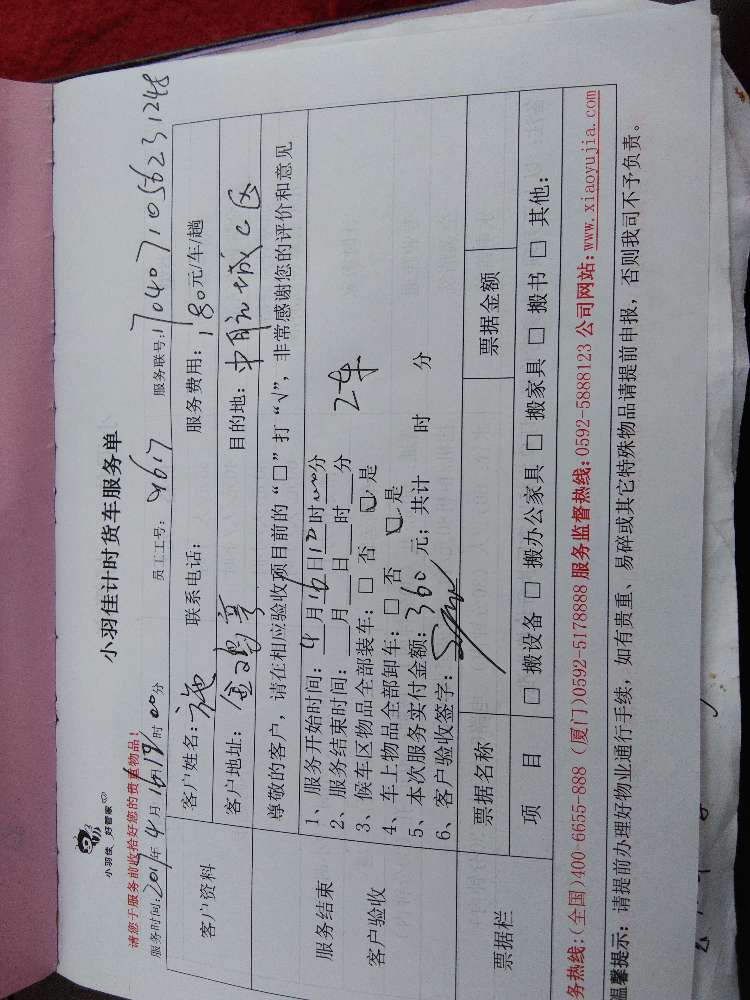 小羽佳 好管家
小羽佳计时货车服务单
请您于服务前收拾好您的贵重物品！
服务时间：2017年4月16日12时00分 员工工号：9617 服务联号：1704071056231248
客户资料
客户姓名：施 联系电话： 服务费用：180元/车/趟
客户地址： 目的地：中航城C区
尊敬的客户，请在相应验收项目前的“□”打“√”，非常感谢您的评价和意见
服务结束
客户验收
1、服务开始时间：4月16日12时00分
2、服务结束时间：月 日 时 分 2车
3、候车区物品全部装车：□ 否 □ 是
4、车上物品全部卸车：□ 否 □ 是
5、本次服务实付金额：360元；共计 时 分
6、客户验收签字：
票据栏
票据名称 票据金额
项 目 □ 搬设备 □ 搬办公家具 □ 搬家具 □ 搬书 □ 其他：
务热线：(全国)400-6655-888 (厦门)0592-5178888 服务监督热线：0592-5888123 公司网站：www.xiaoyujia.com
温馨提示：请提前办理好物业通行手续，如有贵重、易碎或其它特殊物品请提前申报，否则我司不予负责。